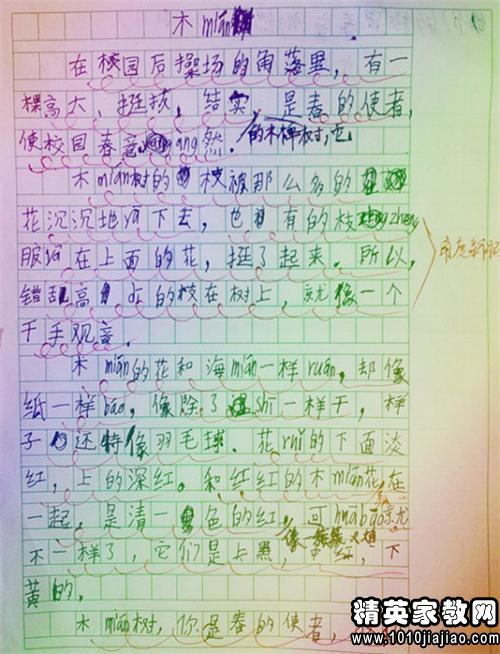 木mián
在校园后操场的角落里，有一
棵高大、挺拔，结实，是春的使者，
的木棉树，它
使校园春意àng然.
木mián树的枝被那么多的
花沉沉地下去，也有的枝zhēng
服在上面的花，挺了起来。所以，
错乱高的枝在树上，就像一个
千手观音.
木mián的花和海mián一样ruǎn，却像
纸一样báo，像除了shī一样干，样
子还特像羽毛球.花ruǐ的下面淡
红，上的深红。和红红的木mián花在
一起，是清一色的红，可huā bāo就
像一簇簇火焰
不一样了，它们是上黑，中红，下
黄的，
木mián树，你是春的使者，
精英家教网
www.1010jiajiao.com